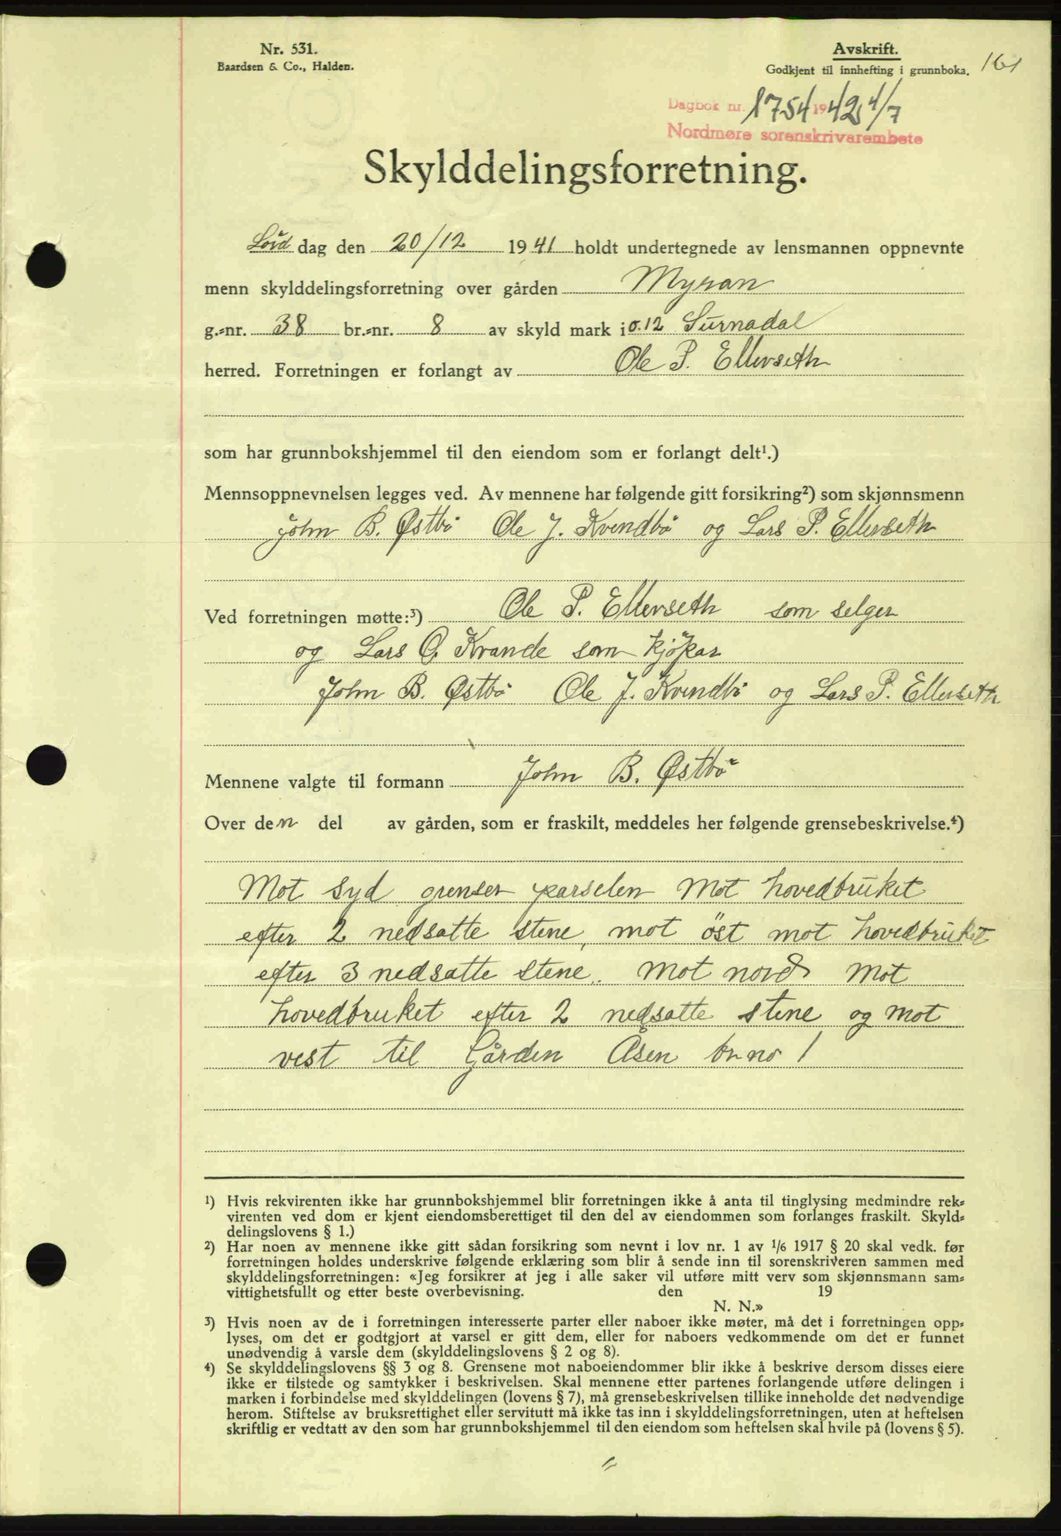 Nr. 531.
Baardsen & Co., Halden.
Avskrift.
Godkjent til innhefting i grunnboka.
161
Dagbok nr. 1754 1942 4/7
Nordmøre sorenskrivarembete
Skylddelingsforretning.
Lørdag den 20/12 1941 holdt undertegnede av lensmannen oppnevnte
menn skylddelingsforretning over gården Myran
g.=nr. 38 br.=nr. 8 av skyld mark 0.12 i Surnadal
herred. Forretningen er forlangt av Ole P. Ellevseth
som har grunnbokshjemmel til den eiendom som er forlangt delt¹.)
Mennsoppnevnelsen legges ved. Av mennene har følgende gitt forsikring²) som skjønnsmenn
John B. Østbö Ole J. Kvendbö og Lars P. Ellevseth
Ved forretningen møtte:³) Ole P. Ellevseth som selger
og Lars O. Kvande som kjøpar
John B. Østbö Ole J. Kvendbö og Lars P. Ellevseth
Mennene valgte til formann John B. Østbö
Over den del av gården, som er fraskilt, meddeles her følgende grensebeskrivelse.⁴)
Mot syd grenser parselen mot hovedbruket
efter 2 nedsatte stene, mot öst mot hovedbruket
efter 3 nedsatte stene. mot nord mot
hovedbruket efter 2 nedsatte stene og mot
vest til Gården Åsen br no 1
¹) Hvis rekvirenten ikke har grunnbokshjemmel blir forretningen ikke å anta til tinglysing medmindre rek=
virenten ved dom er kjent eiendomsberettiget til den del av eiendommen som forlanges fraskilt. Skyld=
delingslovens § 1.)
²) Har noen av mennene ikke gitt sådan forsikring som nevnt i lov nr. 1 av 1/6 1917 § 20 skal vedk. før
forretningen holdes underskrive følgende erklæring som blir å sende inn til sorenskriveren sammen med
skylddelingsforretningen: «Jeg forsikrer at jeg i alle saker vil utføre mitt verv som skjønnsmann sam=
vittighetsfullt og etter beste overbevisning. den 19
N. N.»
³) Hvis noen av de i forretningen interesserte parter eller naboer ikke møter, må det i forretningen opp=
lyses, om det er godtgjort at varsel er gitt dem, eller for naboers vedkommende om det er funnet
unødvendig å varsle dem (skylddelingslovens § 2 og 8).
⁴) Se skylddelingslovens §§ 3 og 8. Grensene mot naboeiendommer blir ikke å beskrive dersom disses eiere
ikke er tilstede og samtykker i beskrivelsen. Skal mennene etter partenes forlangende utføre delingen i
marken i forbindelse med skylddelingen (lovens § 7), må grensebeskrivelsen tillike inneholde det nødvendige
herom. Stiftelse av bruksrettighet eller servitutt må ikke tas inn i skylddelingsforretningen, uten at heftelsen
skriftlig er vedtatt av den som har grunnbokshjemmel til den eiendom som heftelsen skal hvile på (lovens § 5).